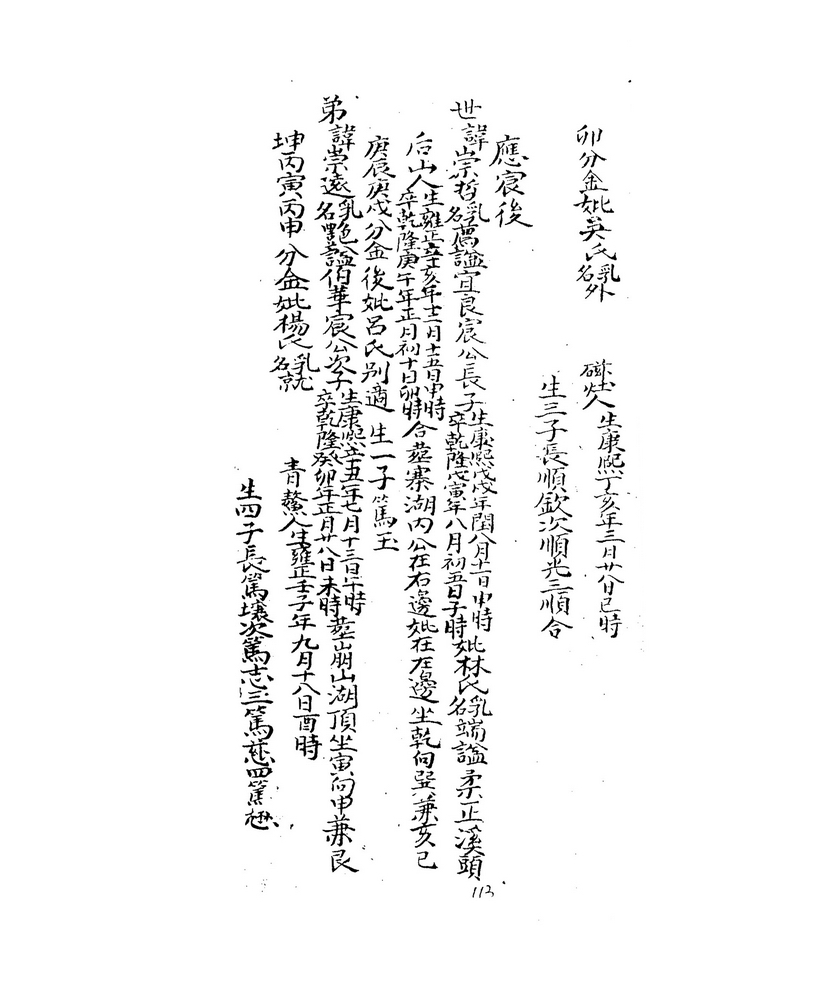 卯分金妣吳氏乳名外 磁灶人生康熙丁亥年三月廿八日巳時
生三子長順欽次順光三順合
應宸後
世諱崇哲乳名薦謚宜良宸公長子生康熙戊戌年閏八月十一日申時卒乾隆戊寅年八月初五日子時妣林氏乳名端謚柔正溪頭
后山人生雍正辛亥年十二月十五日申時卒乾隆庚午年正月初十日卯時合葬寨湖內公在右邊妣在左邊坐乾向巽兼亥巳
庚辰庚戌分金後妣呂氏別適 生一子篤玉
弟諱崇遠乳名謚伯華宸公次子生康熙辛丑年七月十三日午時卒乾隆癸卯年正月廿八日未時葬崩山湖頂坐寅向申兼艮
坤丙寅丙申分金妣楊氏乳名就 青鰲人生雍正壬子年九月十八日酉時
生四子長篤壤次篤志三篤慈四篤懋
113